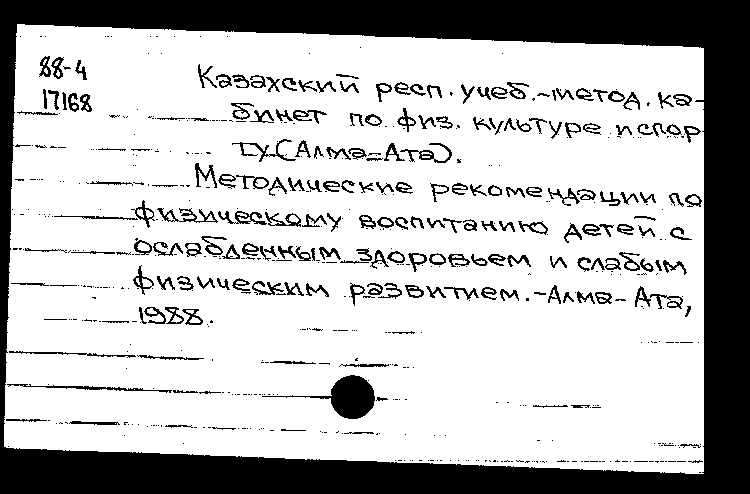 88-4
17168
Казахский респ. учеб.-метод. ка-
бинет по физ. культуре и спор
ту (Алма-Ата).
Методические рекомендации по
физическому воспитанию детей с
ослабленным здоровьем и слабым
физическим развитием.-Алма-Ата,
1988.